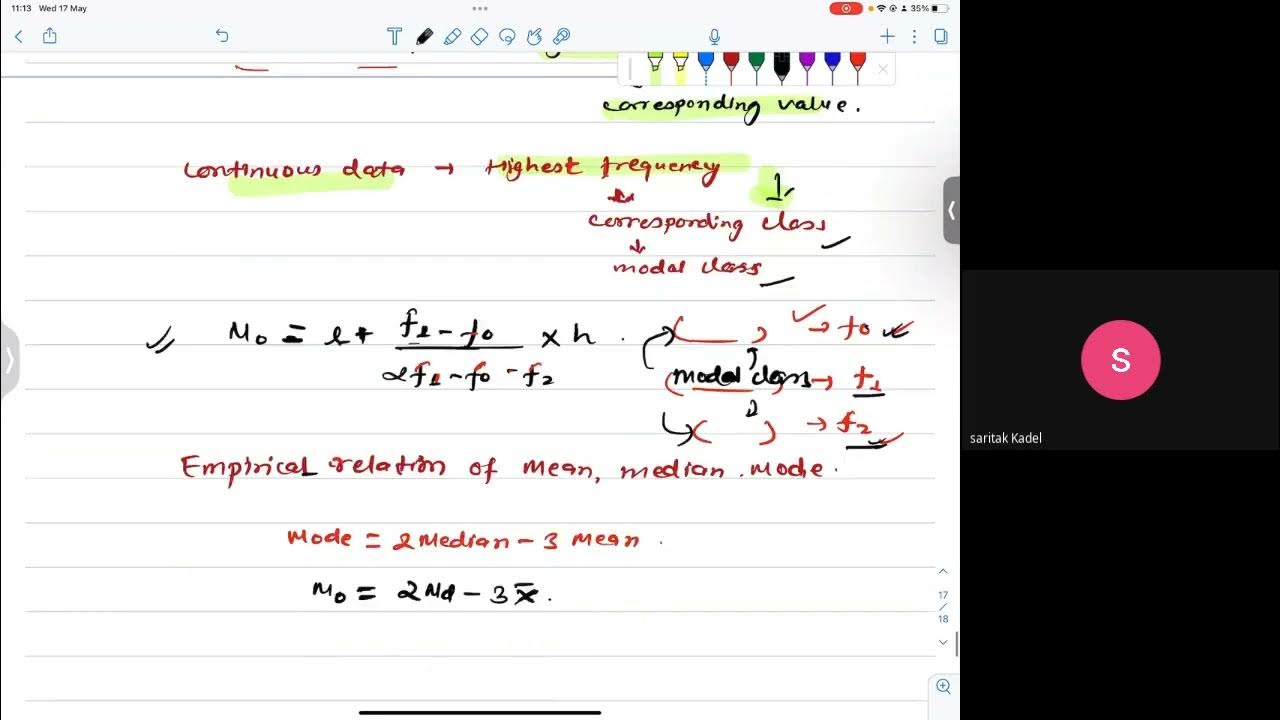 11:13 Wed 17 May
35%
corresponding value.
Continuous data → Highest frequency
1.
corresponding class
modal class
M₀ = l + (f₁ - f₀)/(2f₁ - f₀ - f₂) × h .
( ) → f₀
(modal class) → f₁
( ) → f₂
Empirical relation of mean, median. mode.
Mode = 2 Median - 3 Mean .
M₀ = 2Md - 3x̄.
17
/
18
S
saritak Kadel